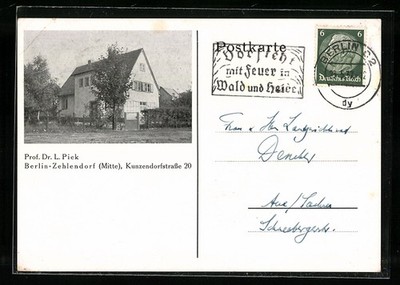 Prof. Dr. L. Pick
Berlin-Zehlendorf (Mitte), Kunzendorfstraße 20
Postkarte
Vorsicht
mit Feuer in
Wald und Heide
BERLIN C2
dy
6 6
Deutsches Reich
Frau u. Herr
Aue/Sachsen